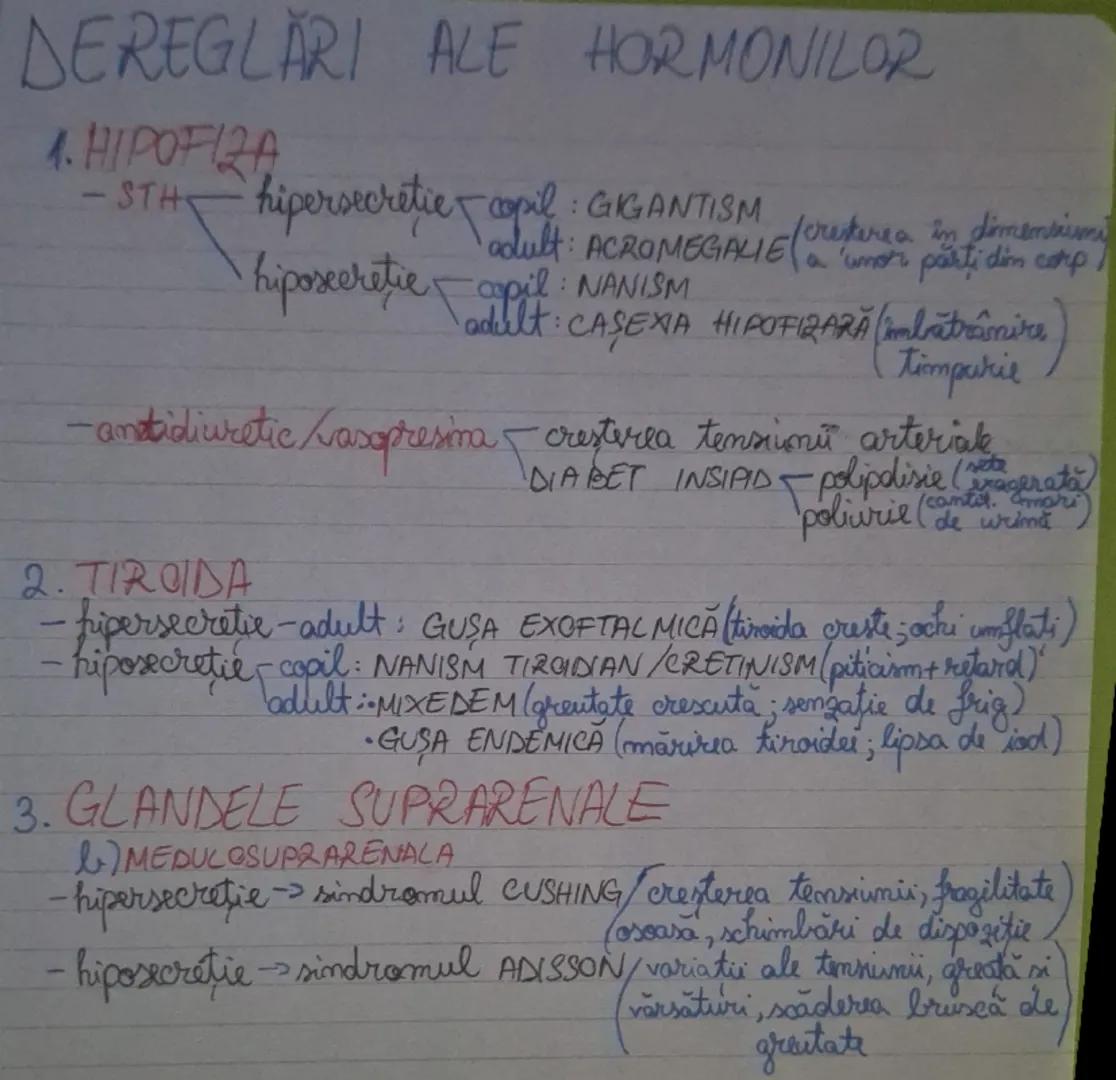 DEREGLĂRI ALE HORMONILOR
1. HIPOFIZA
- STH hipersecreție copil : GIGANTISM
adult : ACROMEGALIE (creșterea în dimensiuni
a unor părți din corp)
hiposecreție copil : NANISM
adult : CAȘEXIA HIPOFIZARĂ (îmbătrânire
timpurie)
- antidiuretic/vasopresina creșterea tensiunii arteriale
DIABET INSIPID polipdisie (sete
exagerată)
poliurie (cantit. mari
de urină)
2. TIROIDA
- hipersecreție - adult : GUȘA EXOFTALMICĂ (tiroida crește; ochi umflați)
- hiposecreție copil : NANISM TIROIDIAN /CRETINISM (piticism + retard)
adult : • MIXEDEM (greutate crescută ; senzație de frig)
• GUȘA ENDEMICĂ (mărirea tiroidei ; lipsa de iod)
3. GLANDELE SUPRARENALE
b) MEDULOSUPRARENALA
- hipersecreție → sindromul CUSHING (creșterea tensiunii, fragilitate
osoasă, schimbări de dispoziție)
- hiposecreție → sindromul ADISSON (variații ale tensiunii, greață si
vărsături, scăderea bruscă de
greutate)